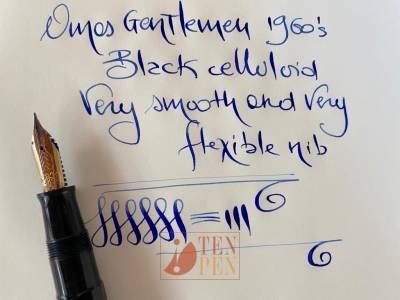 Omas Gentlemen 1960's
Black celluloid
Very smooth and very
flexible nib
TEN
PEN